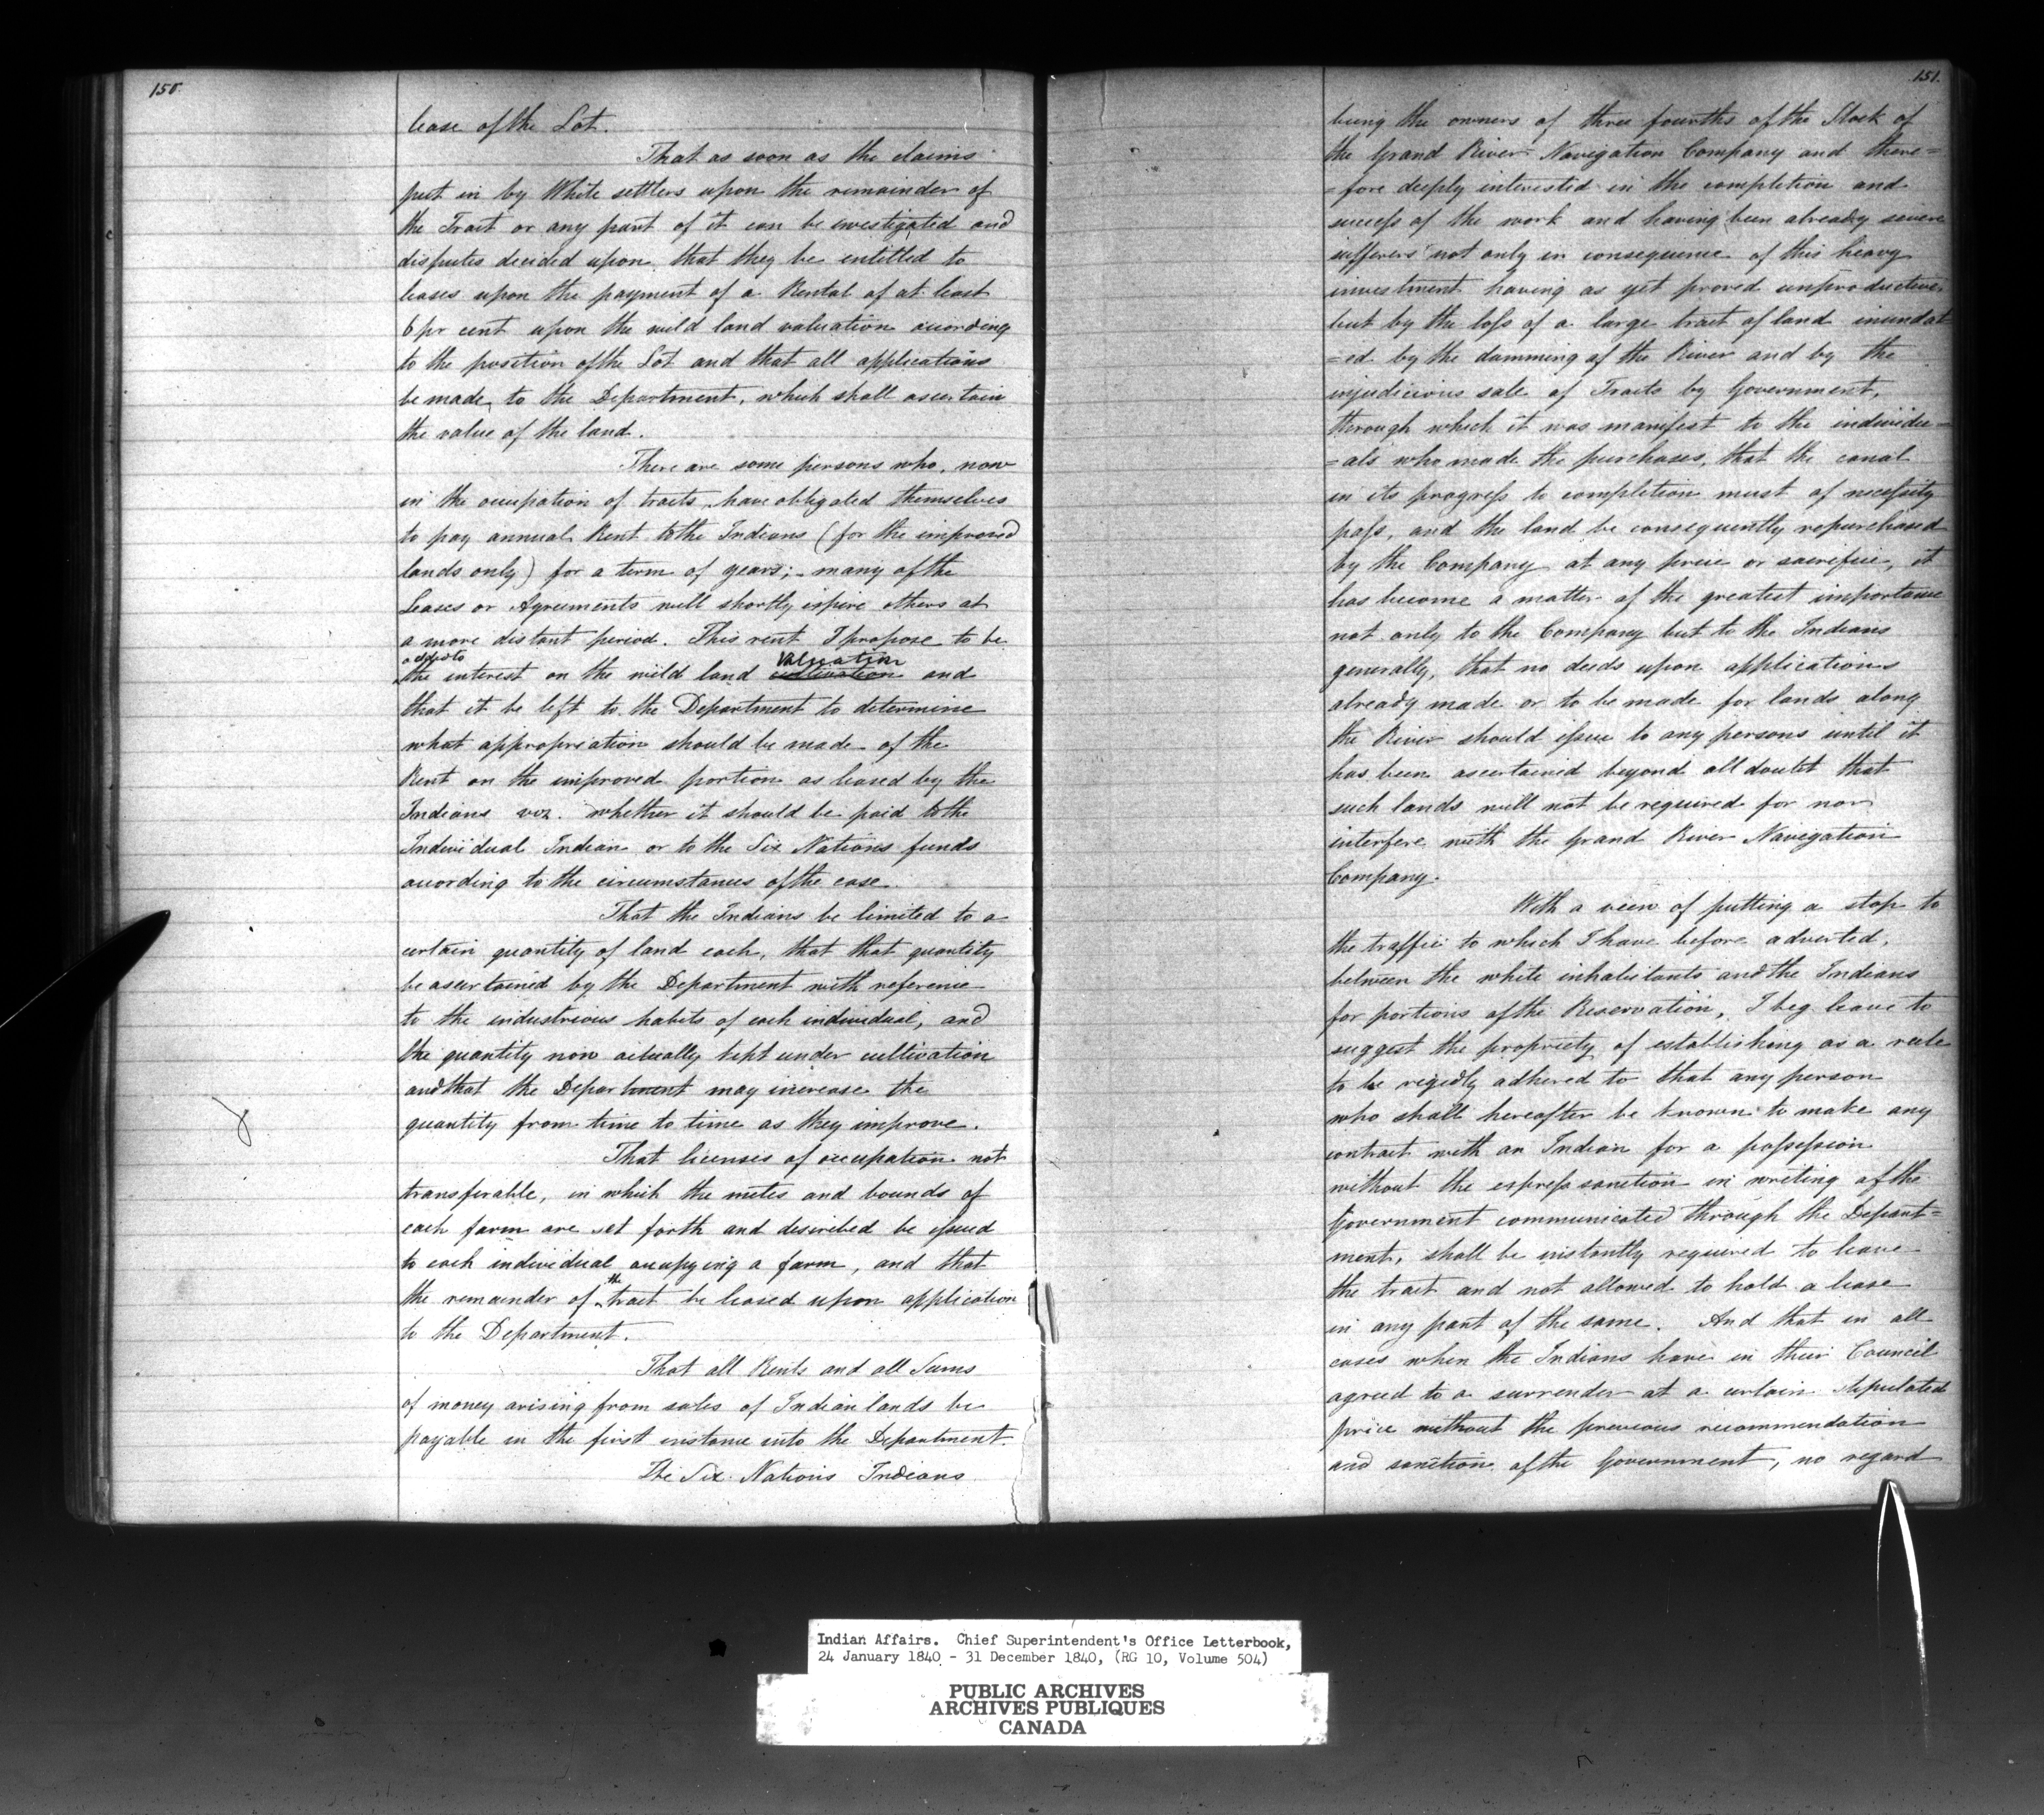 150
lease of the Lot.
That as soon as the claims
put in by White settlers upon the remainder of
the Tract or any part of it can be investigated and
disputes decided upon, that they be entitled to
leases upon the payment of a Rental of at least
6 pr cent upon the wild land valuation according
to the position of the Lot and that all applications
be made, to the Department, which shall ascertain
the value of the land.
There are some persons who, now
in the occupation of tracts, have obligated themselves
to pay annual Rent to the Indians (for the improved
lands only) for a term of years; - many of the
Leases or Agreements will shortly expire others at
a more distant period. This rent I propose to be
added to valuation
the interest on the wild land cultivation and
that it be left to the Department to determine
what appropriation should be made of the
Rent on the improved portion as leased by the
Indians viz. whether it should be paid to the
Individual Indian or to the Six Nations funds
according to the circumstances of the case.
That the Indians be limited to a
certain quantity of land each, that that quantity
be ascertained by the Department with reference
to the industrious habits of each individual, and
the quantity now actually kept under cultivation
and that the Department may increase the
quantity from time to time as they improve.
That licenses of occupation not
transferable, in which the metes and bounds of
each farm are set forth and described be issued
to each individual occupying a farm, and that
the
the remainder of tract be leased upon application
to the Department.
That all Rents and all Sums
of money arising from sales of Indian lands be
payable in the first instance into the Department.
The Six Nations Indians
151.
being the owners of three fourths of the Stock of
the Grand River Navigation Company and there=
=fore deeply interested in the completion and
success of the work and having been already severe
sufferers not only in consequence of this heavy
investment having as yet proved unproductive,
but by the loss of a large tract of land inundat
=ed by the damming of the River and by the
injudicious sale of Tracts by Government,
through which it was manifest to the individu=
=als who made the purchases, that the canal
in its progress to completion must of necessity
pass, and the land be consequently repurchased
by the Company at any price or sacrifice, it
has become a matter of the greatest importance
not only to the Company but to the Indians
generally, that no deeds upon applications
already made or to be made for lands along
the River should issue to any persons until it
has been ascertained beyond all doubt that
such lands will not be required for nor
interfere with the Grand River Navigation
Company.
With a view of putting a stop to
the traffic to which I have before adverted,
between the white inhabitants and the Indians
for portions of the Reservation, I beg leave to
suggest the propriety of establishing as a rule
to be rigidly adhered to that any person
who shall hereafter be known to make any
contract with an Indian for a possession
without the express sanction in writing of the
Government communicated through the Depart=
ment, shall be instantly required to leave
the tract and not allowed to hold a lease
in any part of the same. And that in all
cases when the Indians have in their Council
agreed to a surrender at a certain stipulated
price without the previous recommendation
and sanction of the Government, no regard
Indian Affairs. Chief Superintendent's Office Letterbook,
24 January 1840 - 31 December 1840, (RG 10, Volume 504)
PUBLIC ARCHIVES
ARCHIVES PUBLIQUES
CANADA